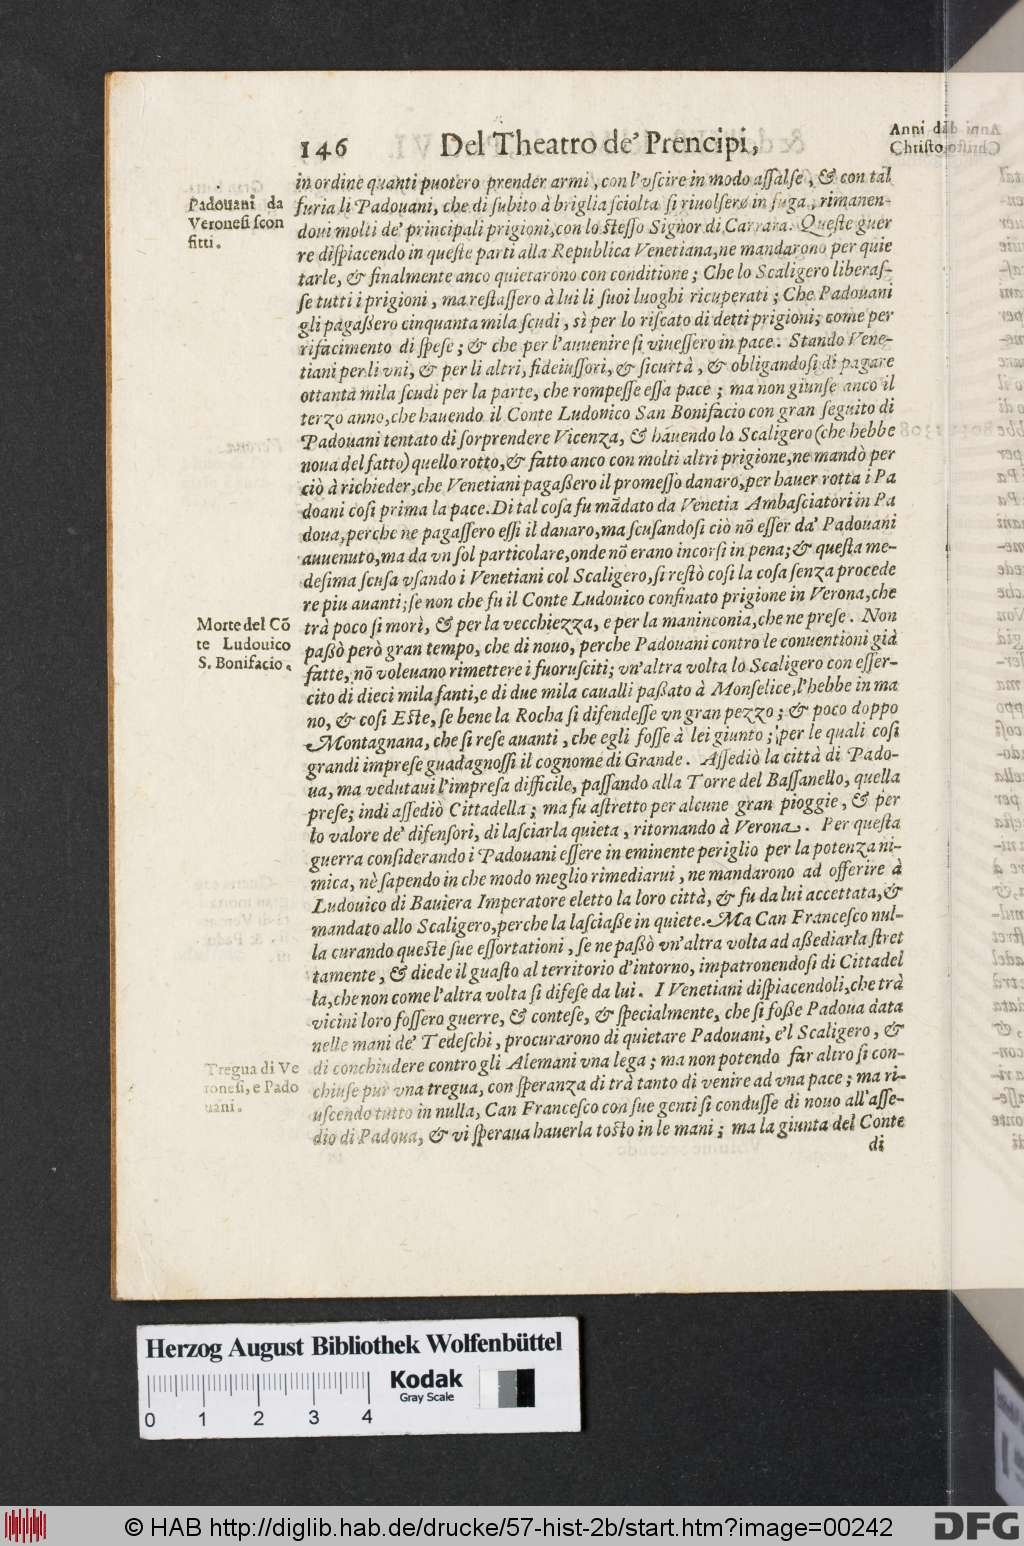 146 Del Theatro de' Prencipi,
Anni di
Christo,
in ordine quanti puotero prender armi, con l'vscire in modo assalse, & con tal
furia li Padouani, che di subito à briglia sciolta si riuolsero in fuga, rimanen-
doui molti de' principali prigioni, con lo stesso Signor di Carrara. Queste guer
re dispiacendo in queste parti alla Republica Venetiana, ne mandarono per quie
tarle, & finalmente anco quietarono con conditione; Che lo Scaligero liberas-
se tutti i prigioni, ma restassero à lui li suoi luoghi ricuperati; Che Padouani
gli pagaßero cinquanta mila scudi, sì per lo riscato di detti prigioni; come per
rifacimento di spese; & che per l'auuenire si viuessero in pace. Stando Vene-
tiani per li vni, & per li altri, fideiussori, & sicurtà, & obligandosi di pagare
ottanta mila scudi per la parte, che rompesse essa pace; ma non giunse anco il
terzo anno, che hauendo il Conte Ludouico San Bonifacio con gran seguito di
Padouani tentato di sorprendere Vicenza, & hauendo lo Scaligero (che hebbe
noua del fatto) quello rotto, & fatto anco con molti altri prigione, ne mandò per
ciò à richieder, che Venetiani pagaßero il promesso danaro, per hauer rotta i Pa
doani cosi prima la pace. Di tal cosa fu mãdato da Venetia Ambasciatori in Pa
doua, perche ne pagassero essi il danaro, ma scusandosi ciò nõ esser da' Padouani
auuenuto, ma da vn sol particolare, onde nõ erano incorsi in pena; & questa me-
desima scusa vsando i Venetiani col Scaligero, si restò cosi la cosa senza procede
re piu auanti; se non che fu il Conte Ludouico confinato prigione in Verona, che
trà poco si morì, & per la vecchiezza, e per la maninconia, che ne prese. Non
paßò però gran tempo, che di nouo, perche Padouani contro le conuentioni già
fatte, nõ voleuano rimettere i fuorusciti; vn'altra volta lo Scaligero con esser-
cito di dieci mila fanti, e di due mila caualli paßato à Monselice, l'hebbe in ma
no, & cosi Este, se bene la Rocha si difendesse vn gran pezzo; & poco doppo
Montagnana, che si rese auanti, che egli fosse à lei giunto; per le quali cosi
grandi imprese guadagnossi il cognome di Grande. Assediò la città di Pado-
ua, ma vedutaui l'impresa difficile, passando alla Torre del Bassanello, quella
prese; indi assediò Cittadella; ma fu astretto per alcune gran pioggie, & per
lo valore de' difensori, di lasciarla quieta, ritornando à Verona. Per questa
guerra considerando i Padouani essere in eminente periglio per la potenza ni-
mica, nè sapendo in che modo meglio rimediarui, ne mandarono ad offerire à
Ludouico di Bauiera Imperatore eletto la loro città, & fu da lui accettata, &
mandato allo Scaligero, perche la lasciaße in quiete. Ma Can Francesco nul-
la curando queste sue essortationi, se ne paßò vn'altra volta ad aßediarla stret
tamente, & diede il guasto al territorio d'intorno, impatronendosi di Cittadel
la, che non come l'altra volta si difese da lui. I Venetiani dispiacendoli, che trà
vicini loro fossero guerre, & contese, & specialmente, che si foße Padoua data
nelle mani de' Tedeschi, procurarono di quietare Padouani, e'l Scaligero, &
di conchiudere contro gli Alemani vna lega; ma non potendo far altro si con-
chiuse pur vna tregua, con speranza di trà tanto di venire ad vna pace; ma ri-
uscendo tutto in nulla, Can Francesco con sue genti si condusse di nouo all'asse-
dio di Padoua, & vi speraua hauerla tosto in le mani; ma la giunta del Conte
di
Padouani da
Veronesi scon
fitti.
Morte del Cõ
te Ludouico
S. Bonifacio.
Tregua di Ve
ronesi, e Pado
uani.
Herzog August Bibliothek Wolfenbüttel
Kodak
Gray Scale
0 1 2 3 4
© HAB http://diglib.hab.de/drucke/57-hist-2b/start.htm?image=00242
DFG